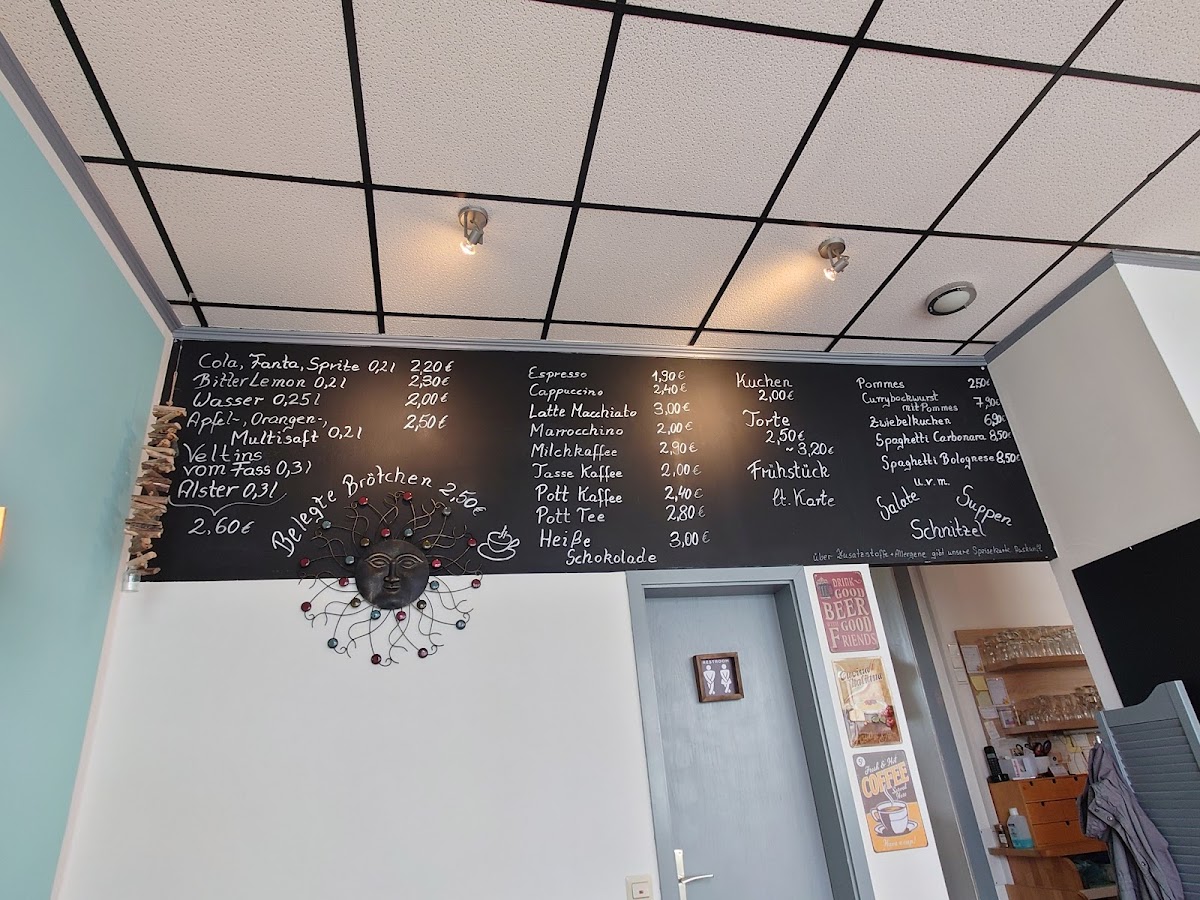 Cola, Fanta, Sprite 0,2l 2,20€
Bitter Lemon 0,2l 2,30€
Wasser 0,25l 2,00€
Apfel-, Orangen-, 2,50€
Multisaft 0,2l
Veltins
vom Fass 0,3l
Alster 0,3l
2,60€
Belegte Brötchen 2,50€
Espresso 1,90€
Cappuccino 2,40€
Latte Macchiato 3,00€
Marrocchino 2,00€
Milchkaffee 2,90€
Tasse Kaffee 2,00€
Pott Kaffee 2,40€
Pott Tee 2,80€
Heiße 3,00€
Schokolade
Kuchen
2,00€
Torte
2,50€
~3,20€
Frühstück
lt. Karte
Pommes 2,50€
Currybockwurst 7,90€
mit Pommes
Zwiebelkuchen 6,90€
Spaghetti Carbonara 8,50€
Spaghetti Bolognese 8,50€
u.v.m.
Salate Suppen
Schnitzel
über Zusatzstoffe + Allergene gibt unsere Speisekarte Auskunft
RESTROOM
DRINK
GOOD
BEER
GOOD
FRIENDS
Cucina
Italiana
Fresh & Hot
COFFEE
Served
Here